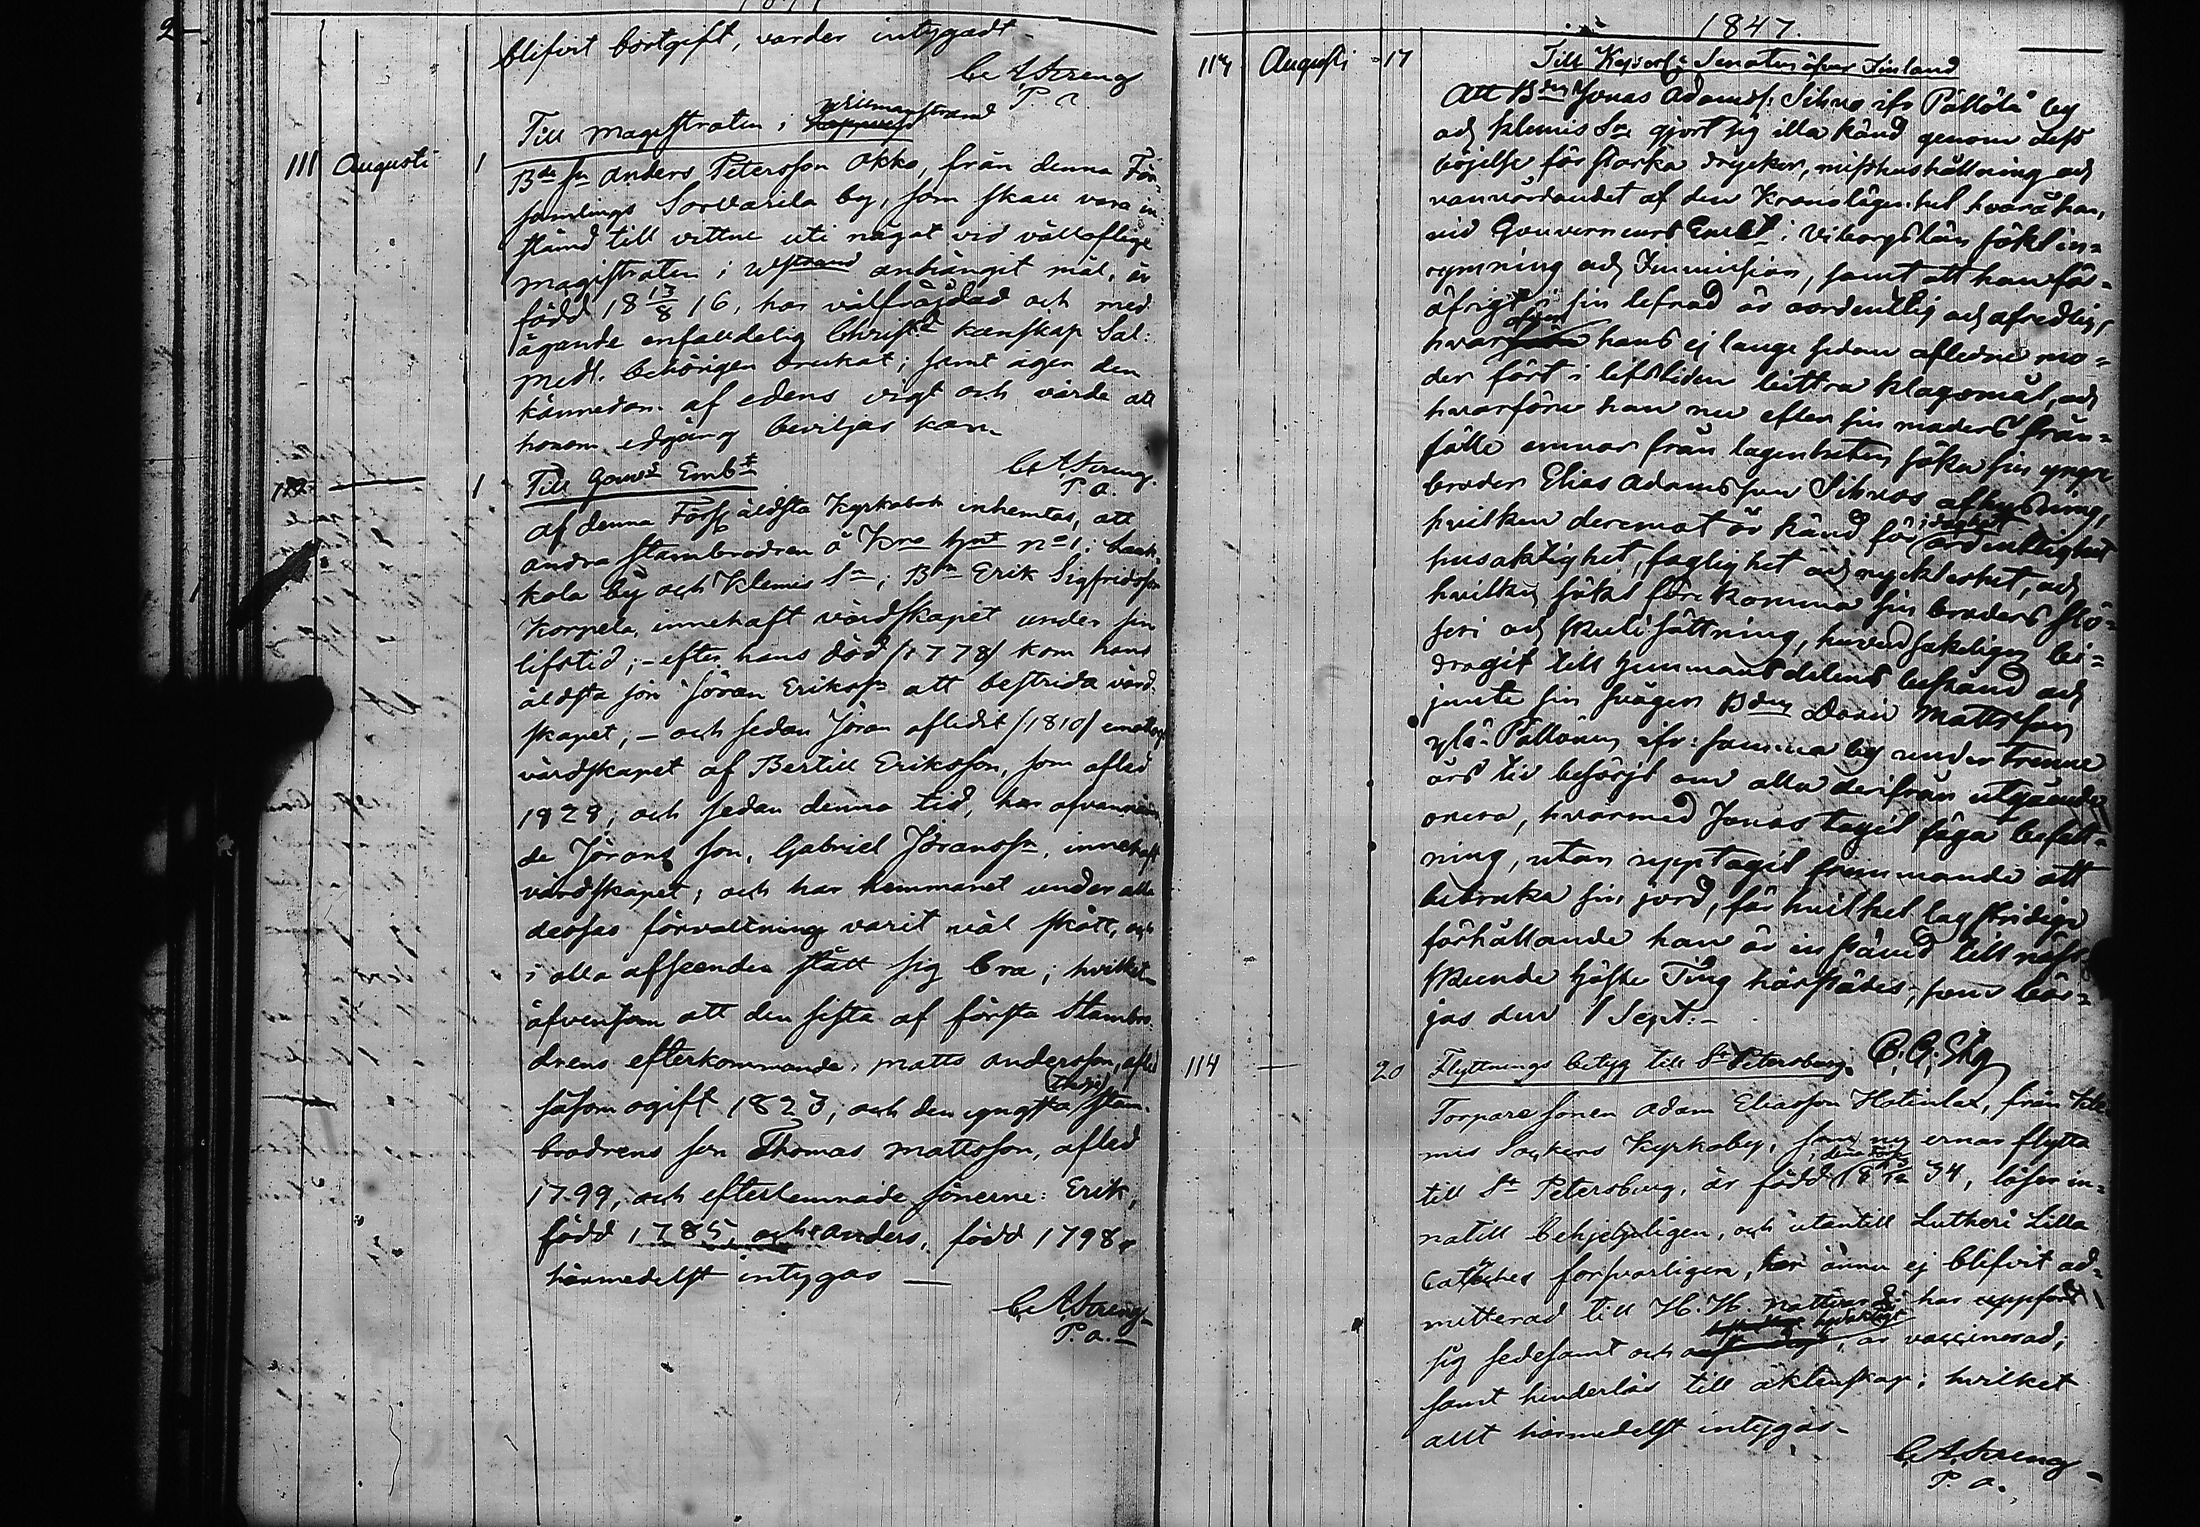 2
blifvit bortgift, varder intygadt
C. A. Streng
P. a.
Till Magistraten i Willmanstrand
111 Augusti 1
Bde sn Anders Petersson Okko, från denna För-
samlings Sorvarila by, som skall vara in-
stämd till vittne uti något vid vällofliga
Magistraten i Wstrand anhängit mål, är
född 18 13/8 16, har välfräjdad och med
ägande enfalldelig Christl. kunskap Sal:
Medl. behörigen brukat; samt äger den
kännedom af edens vigt och värde att
honom edgång beviljas kan.
C. A. Streng
P. a.
112 — 1
Till Gouvs Embt
Af denna Förs: äldsta Kyrkobok inhemtas, att
andra stambrodren å Kro hmt No 1 i
kola by och Klemis Sn, Bn Erik Sigfridsson
Korpela, innehaft värdskapet under sin
lifstid; – efter hans död /1778/ kom hans
äldsta son Jöran Erikssn att bestrida värd-
skapet, – och sedan Jöran aflidit /1810/ emottogs
värdskapet af Bertill Eriksson, som afled
1828; och sedan denna tid, har ofvannämn
de Jörans son, Gabriel Jöranssn, innehaft
värdskapet; och har hemmanet under alla
dessas förvaltning varit väl skött, och
i alla afseenden stått sig bra; hvilket
äfvensom att den sista af första Stambro-
drens efterkommande, Matts Andersson, afled
såsom ogift 1823, och den yngsta (tredje) stam-
brodrens son Thomas Mattsson, afled
1799, och efterlemnade sönerne: Erik,
född 1785, och Anders, född 1798,
härmedelst intygas —
C. A. Streng
P. a. –
1847.
113 Augusti 17
Till Kejserl: Senaten öfver Finland
Att Bden Jonas Adamss: Sihvo ifr Pällölä by
och Klemis Sn gjort sig illa känd genom dess
böjelse för starka drycker, misshushållning och
vanvårdandet af den Kronolägenhet hvarå han,
vid Gouverneurs Embt i Viborgs län sökt in-
rymning och Immission, samt att han för-
öfrigt i sin lefnad är oordentlig och ofredlig,
hvaröfver hans ej lange sedan aflidne mo-
der fört i lifstiden bittra klagomål, och
hvarföre han nu efter sin moders från-
fälle ernar från lägenheten söka sin yngre
broder Elias Adamsson Sihvos afhysning,
hvilken deremot är känd för idoghet ordentlighet
husaktighet, foglighet och nyckterhet, och
hvilken sökt förekomma sin broders slö-
seri och skuldsättning, hufvudsakeligen bi-
dragit till hemmansdelens bestånd och
jemte sin svåger Bden David Mattsson
Ylä-Pällönen ifr: samma by under trenne
års tid besörjt om alla derifrån utgående
onera, hvarmed Jonas tagit föga befatt-
ning, utan upptagit främmande att
bebruka sin jord, för hvilket lagstridiga
förhållande han är instämd till näst-
stkunde Höste Ting härstädes, som bör-
jas den 1 Sept: –
C. A. Stg
114 — 20
Flyttnings betyg till St Petersburg.
Torpare sonen Adam Eliasson Hotinla, från Kle-
mis Sockens Kyrkoby, som nu ernar flytta
till St Petersburg, är född i denna Förs 34, läser in-
natill behjelpligen, och utantill Lutheri Lilla
Catèches forsvarligen, har ännu ej blifvit ad-
mitterad till H. H. Nattvard; har uppfört
sig sedesamt och hyddeligt, är vaccinerad,
samt hinderlös till äktenskap; hvilket
allt härmedelst intygas –
C. A. Streng –
P. a.